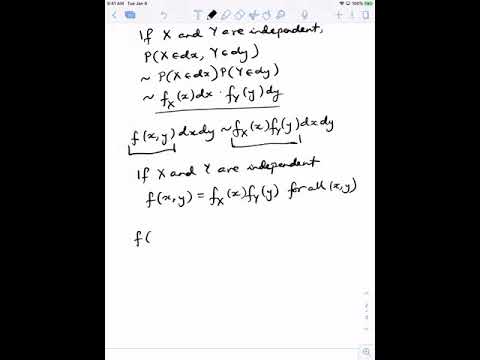 9:41 AM Tue Jan 8
If X and Y are independent,
P(X∈dx, Y∈dy)
~ P(X∈dx)P(Y∈dy)
~ f_X(x)dx · f_Y(y)dy
f(x,y)dxdy ~ f_X(x)f_Y(y)dxdy
If X and Y are independent
f(x,y) = f_X(x)f_Y(y) for all (x,y)
f(